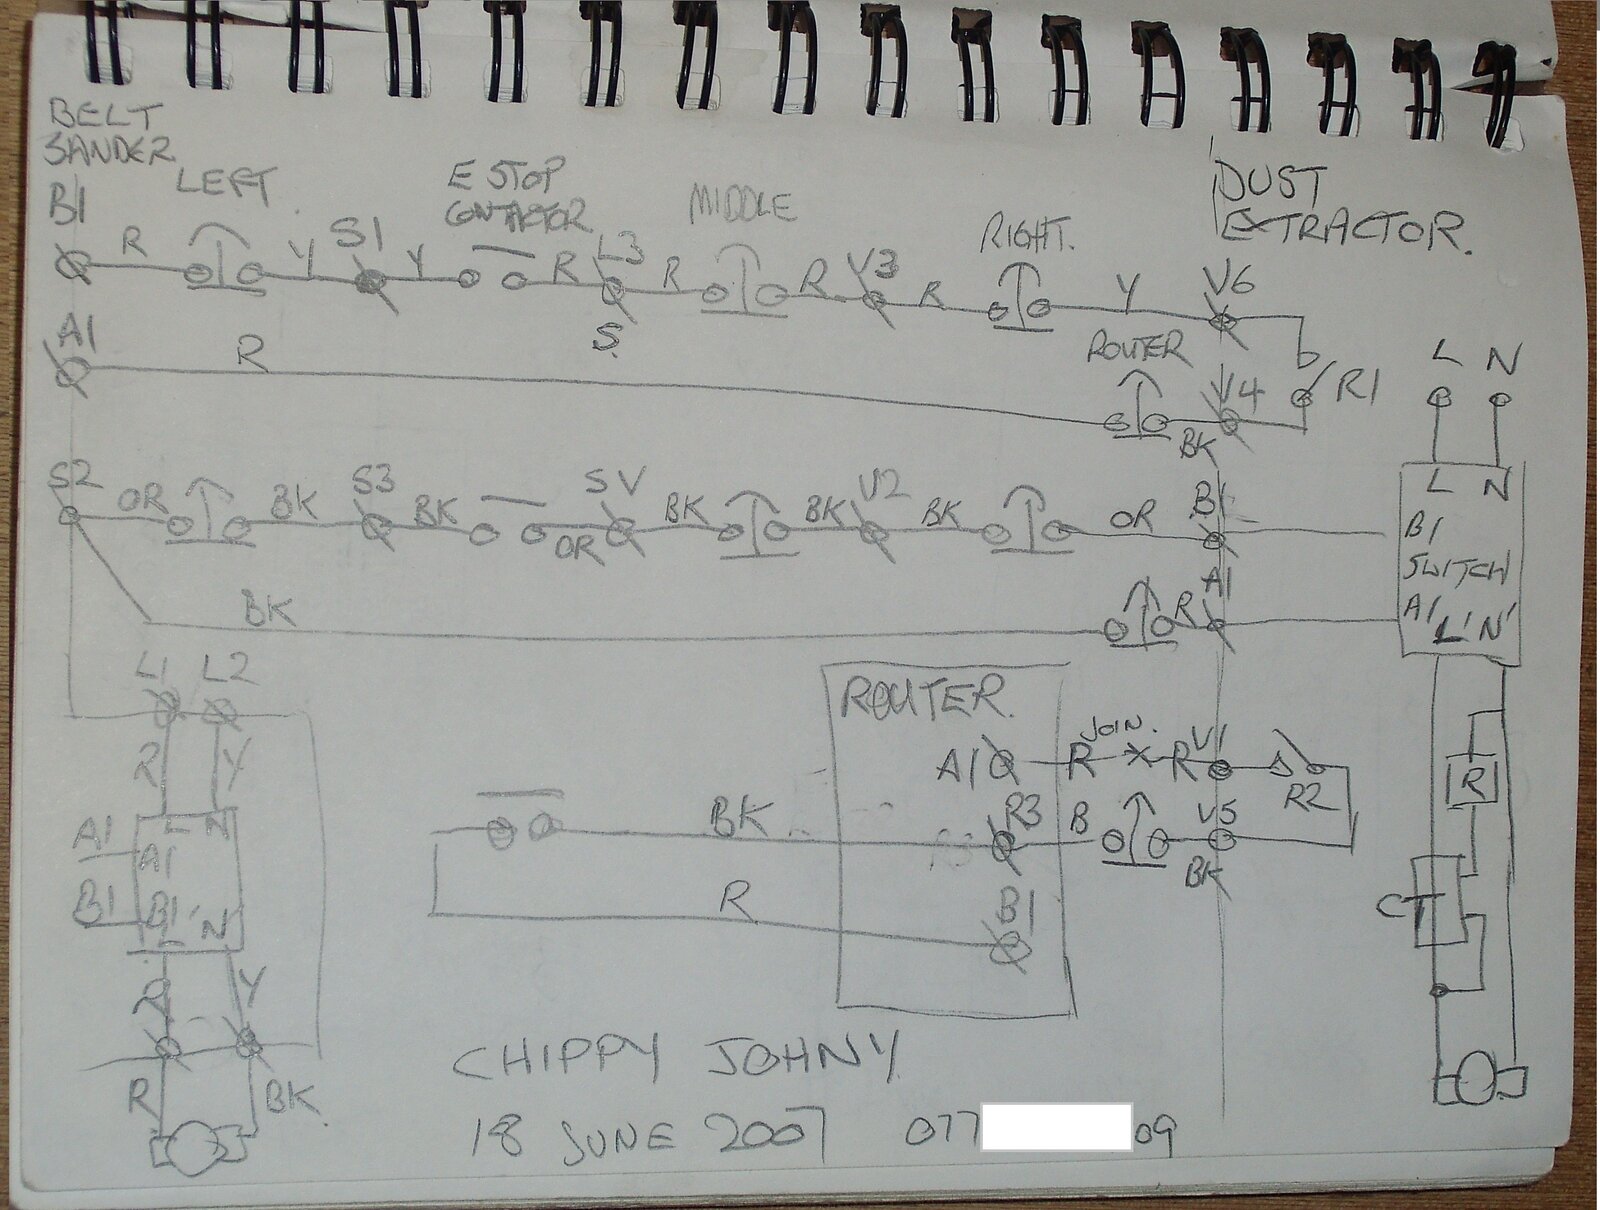 BELT
SANDER
LEFT
E STOP
CONTACTOR
MIDDLE
RIGHT.
DUST
EXTRACTOR.
B1
R
Y
S1
Y
R
L3
R
R
V3
R
Y
V6
S.
A1
R
ROUTER
V4
R1
BK
L
N
S2
OR
BK
S3
BK
OR
SV
BK
BK
V2
BK
OR
B1
L
N
B1
SWITCH
A1
L' N'
BK
R
A1
L1
L2
R
Y
ROUTER.
A1
R
JOIN.
R
V1
R2
R
A1
L N
A1
BK
R3
B
V5
BK
B1
B1
L' N'
R
B1
CT
R
Y
R
BK
CHIPPY JOHNY
18 JUNE 2007
077
09